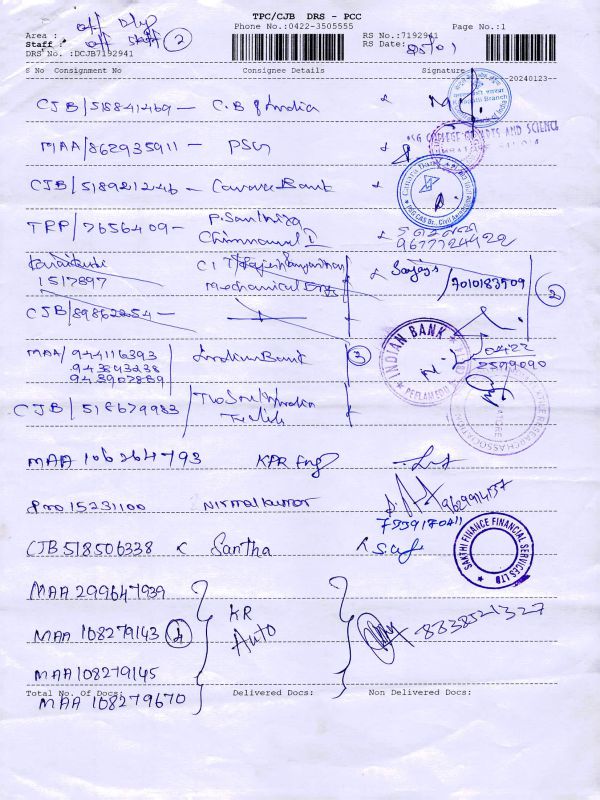 TPC/CJB DRS - PCC
Phone No.:0422-3505555
Page No.:1
Area :
Staff :
DRS No. :DCJB7192941
off Dly
off staff 2
RS No.:7192941
RS Date: 25/01
S No Consignment No Consignee Details Signature
--20240123--
CJB/518841469 - C.B of India
MAA/862935911 - PSG
SG COLLEGE OF ARTS AND SCIENCE
CJB/518921246 - Canara Bank
Canara Bank
TRP/7656409 - P. Santhiya
Chinnavel I
9677724922
1517897
Mechanical Eng
Sanjay S /7010183909
2
CJB/89862254 -
MAA/944116393
943843238
943907839
Indian Bank
3
INDIAN BANK
PEELAMEDU
0422
2599090
CJB/518679983 The South India
MAA 106264793 KPR Eng
Pno 15231100 Nirmalkumar
9629914137
7339170411
CJB518506338 Santha
SAKTHI FINANCE FINANCIAL SERVICES LTD
MAA 299647939
MAA 108279143 4
KR
Auto
8838521327
MAA 108279145
Total No. Of Docs: Delivered Docs: Non Delivered Docs:
MAA 108279670